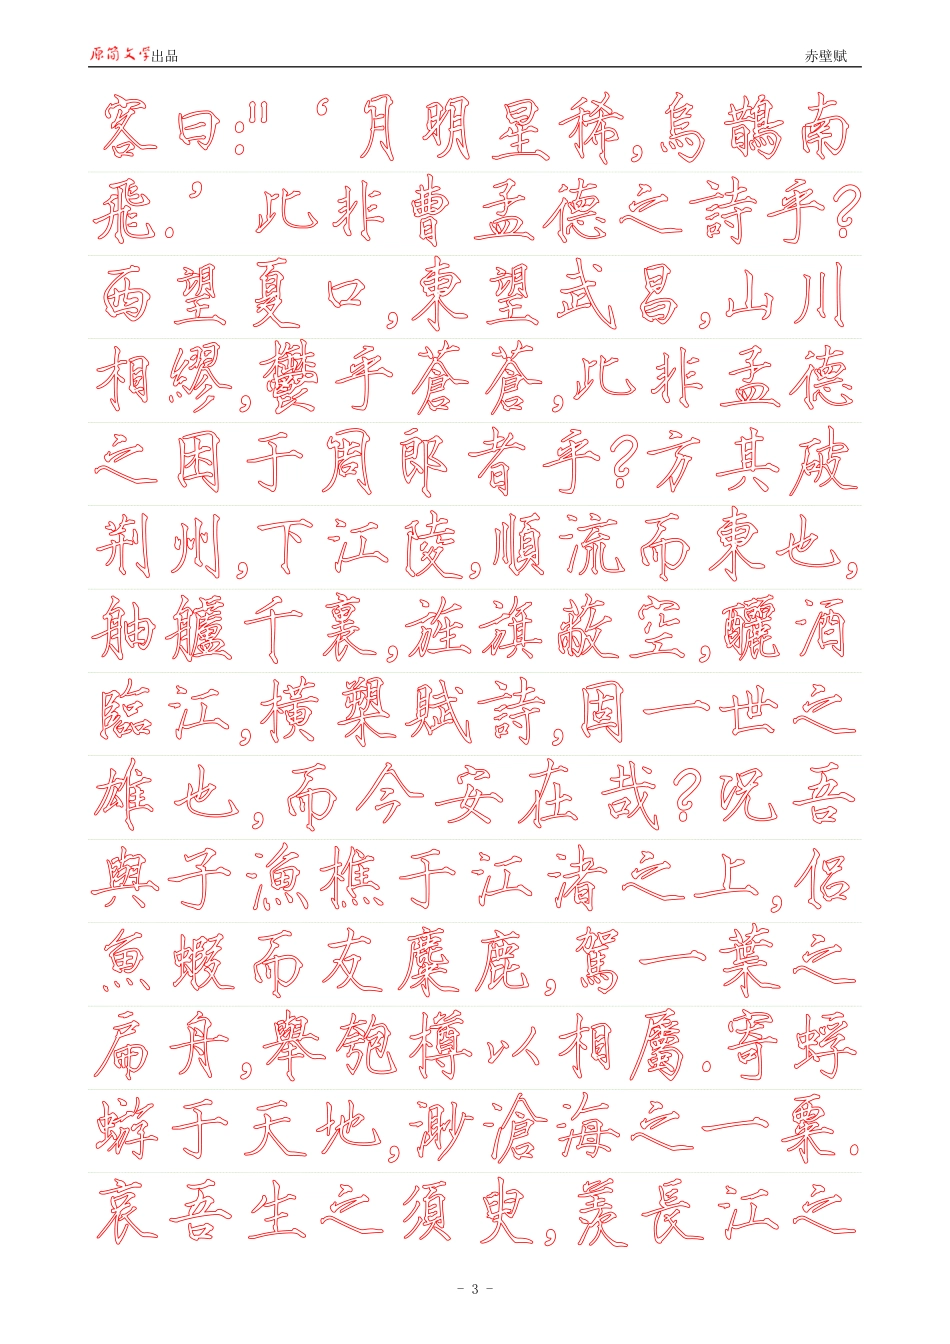 原简文学出品 赤壁赋
客曰:"‘月明星稀,烏鵲南
飛.’此非曹孟德之詩乎?
西望夏口,東望武昌,山川
相繆,鬱乎蒼蒼,此非孟德
之困于周郎者乎?方其破
荆州,下江陵,順流而東也,
舳艫千裏,旌旗蔽空,釃酒
臨江,橫槊賦詩,固一世之
雄也,而今安在哉?況吾
與子漁樵于江渚之上,侶
魚蝦而友麋鹿,駕一葉之
扁舟,舉匏樽以相屬.寄蜉
蝣于天地,渺滄海之一粟.
哀吾生之須臾,羨長江之
- 3 -